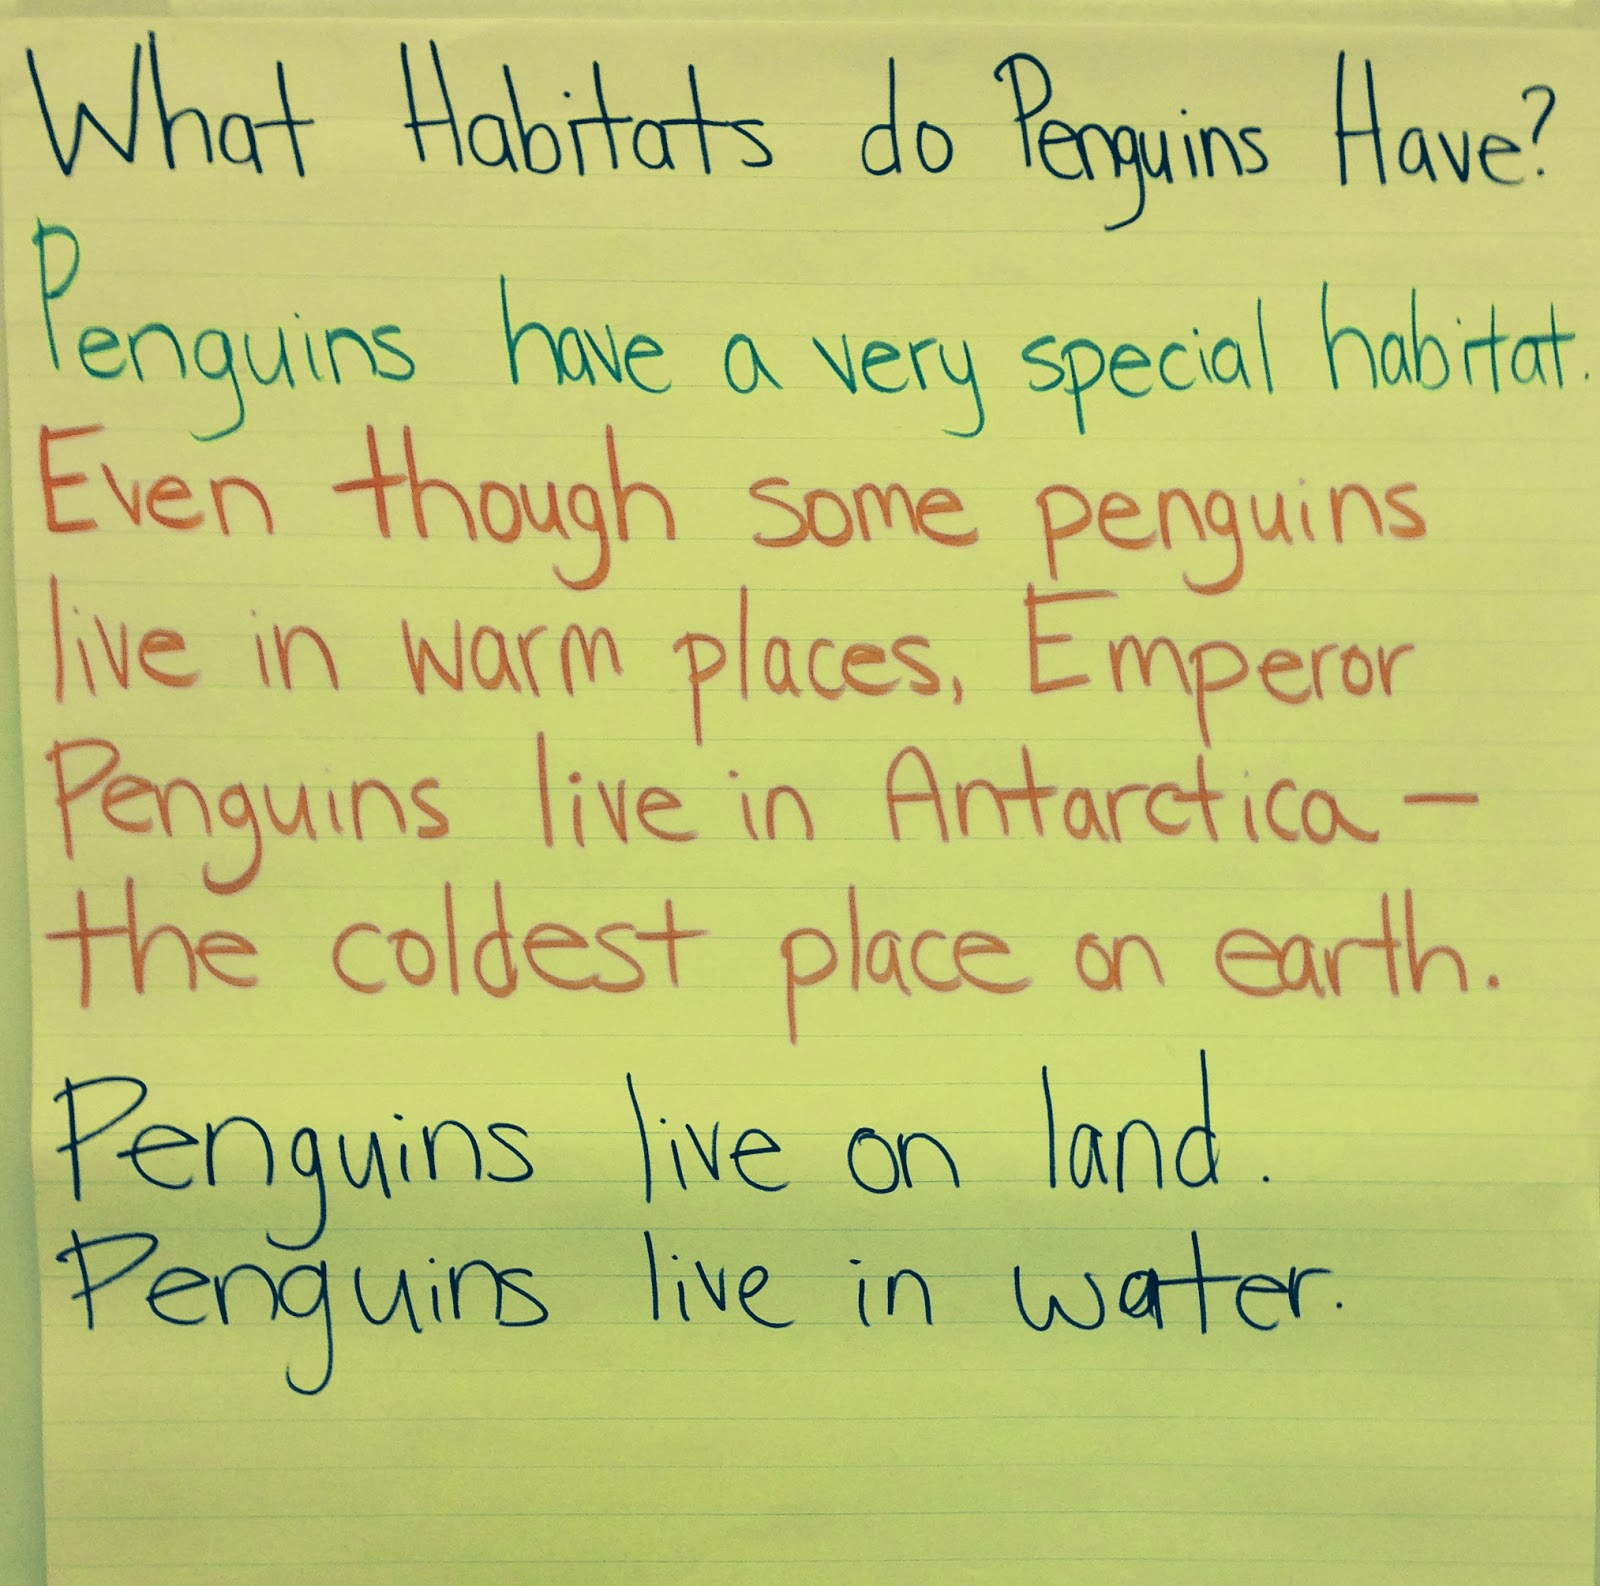 What Habitats do Penguins Have?
Penguins have a very special habitat.
Even though some penguins
live in warm places, Emperor
Penguins live in Antarctica —
the coldest place on earth.
Penguins live on land.
Penguins live in water.